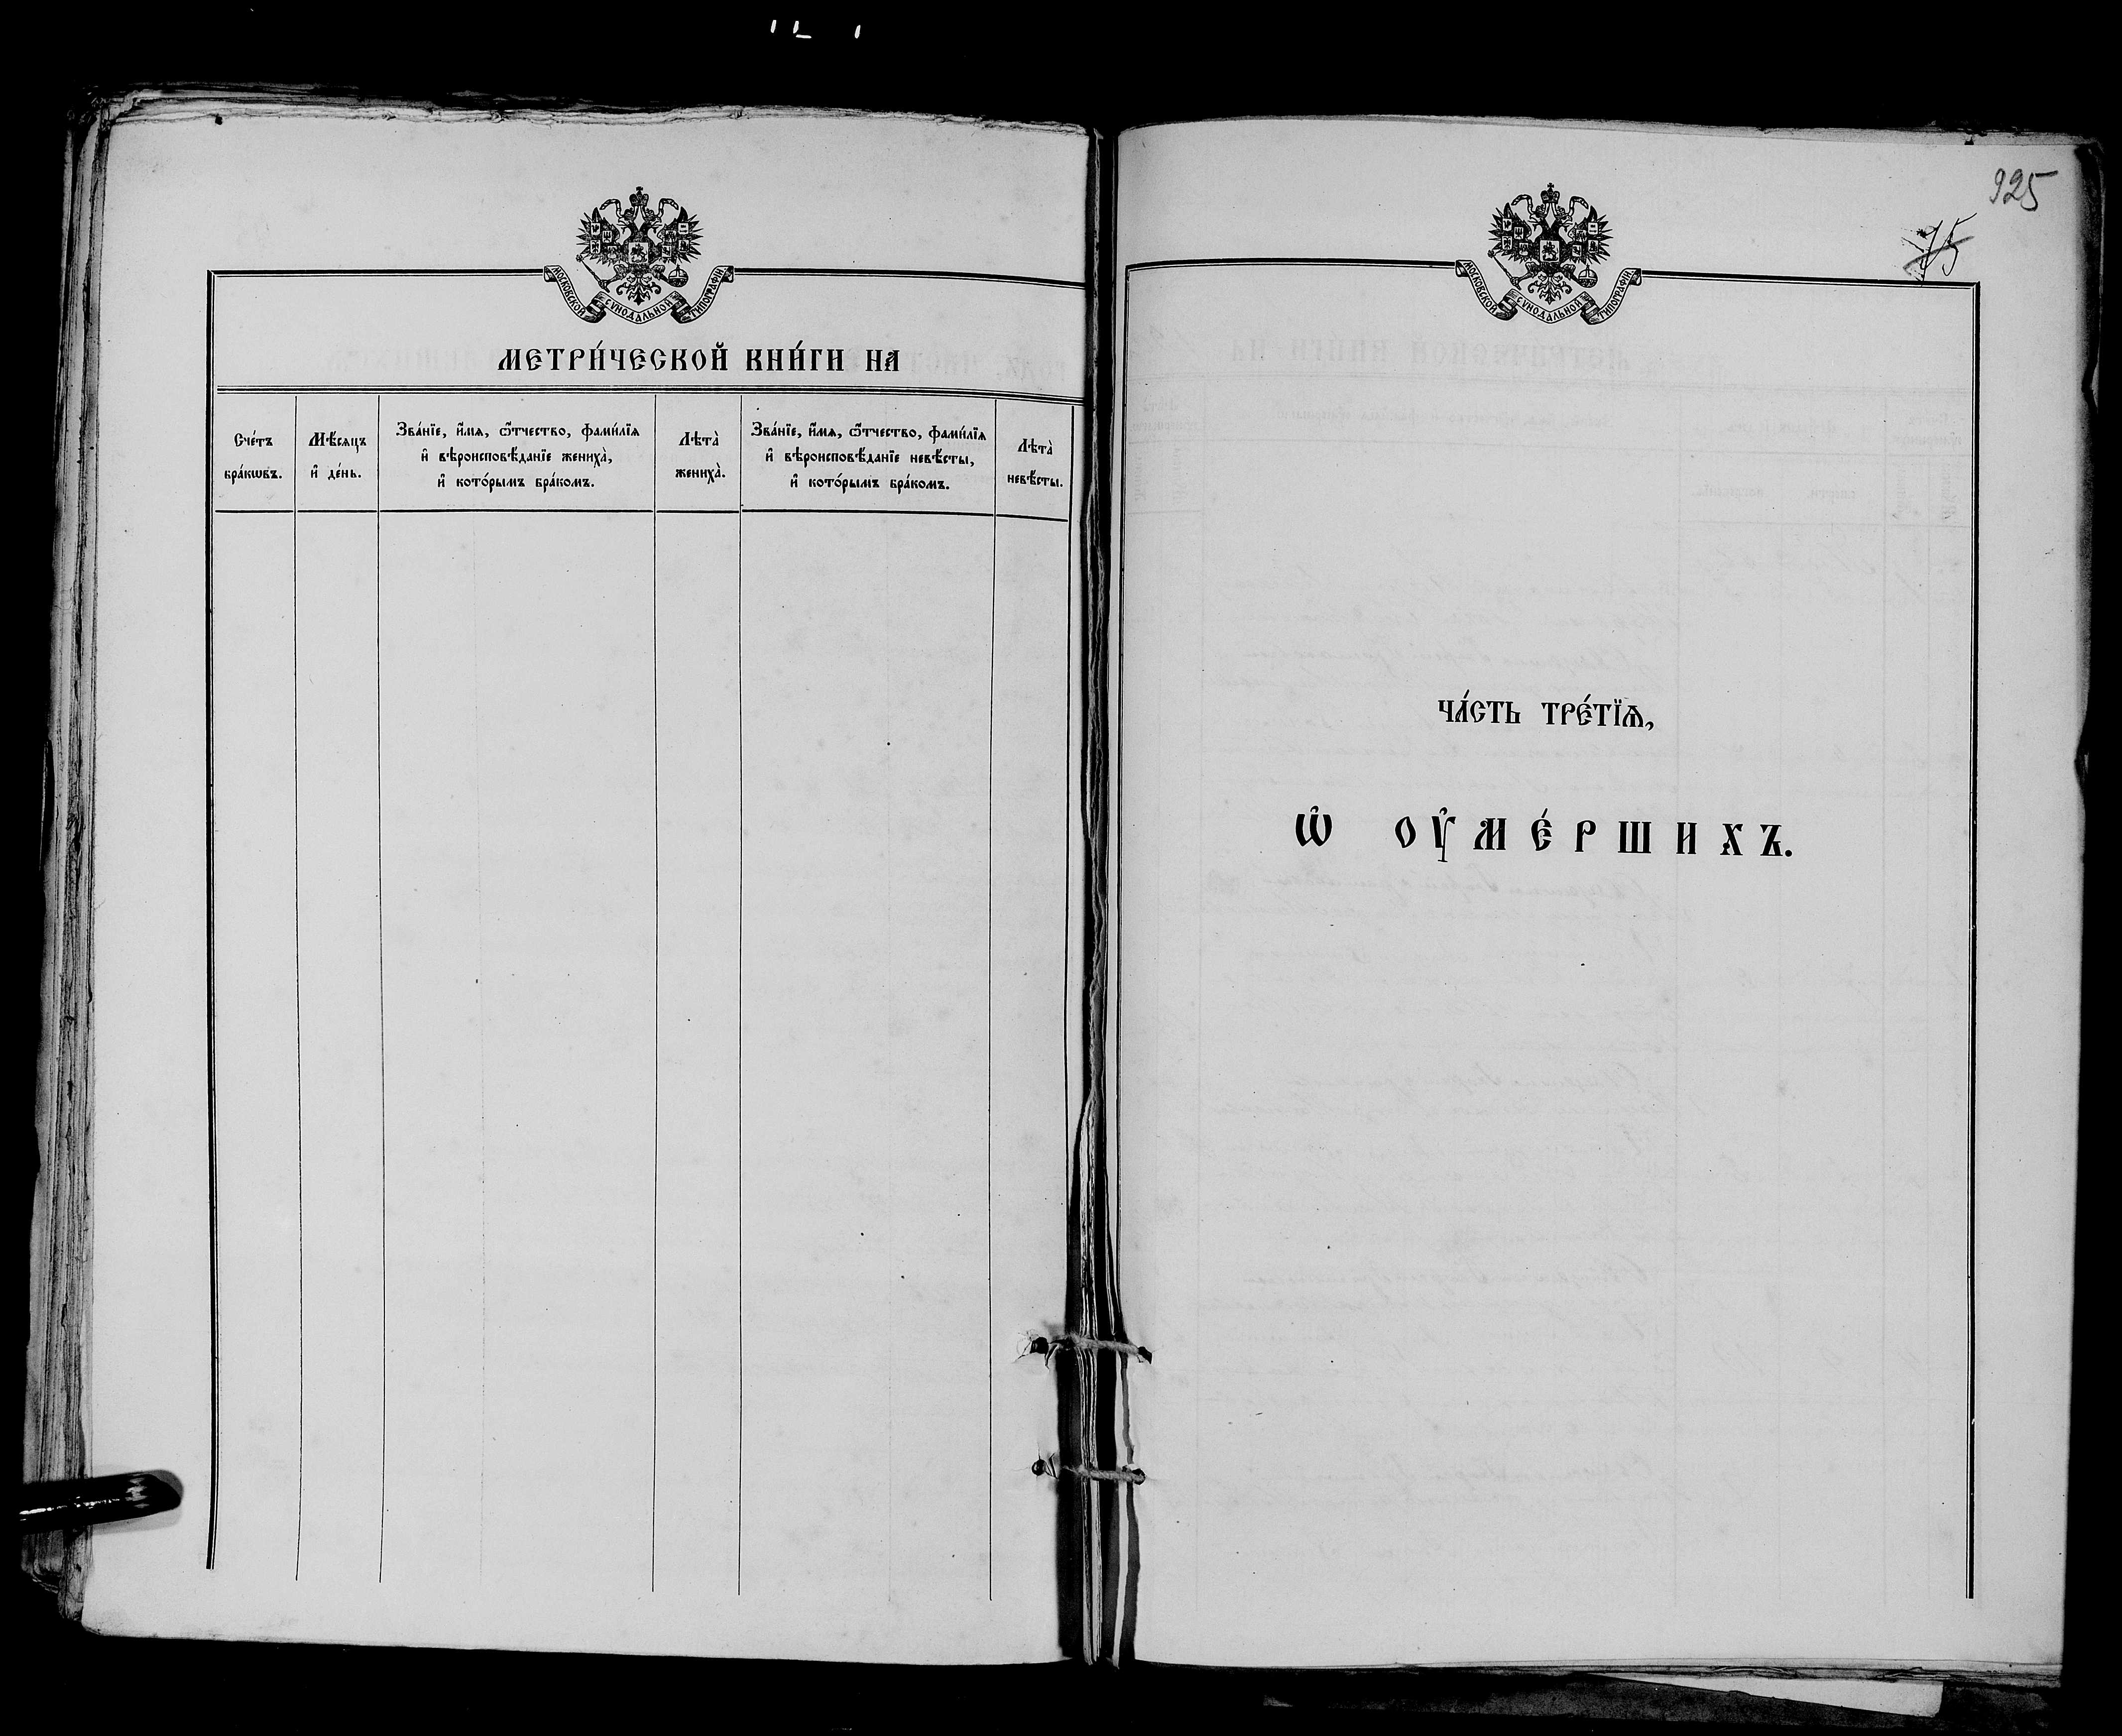 МОСКОВСКОЙ СѴНОДАЛЬНОЙ ТИПОГРАФІИ
МЕТРИ́ЧЕСКОЙ КНИ́ГИ НА
Сче́тъ бра́кѡвъ.
Мѣ́сяцъ и҆ де́нь.
Зва́нїе, и҆́мѧ, ѻ҆́тчество, фами́лїѧ
и҆ вѣроисповѣ́данїе жениха̀,
и҆ кото́рымъ бра́комъ.
Лѣта̀ жениха̀.
Зва́нїе, и҆́мѧ, ѻ҆́тчество, фами́лїѧ
и҆ вѣроисповѣ́данїе невѣ́сты,
и҆ кото́рымъ бра́комъ.
Лѣта̀ невѣ́сты.
925
75
МОСКОВСКОЙ СѴНОДАЛЬНОЙ ТИПОГРАФІИ
ЧА́СТЬ ТРЕ́ТЇѦ,
Ѡ҆ ОУ҆МЕ́РШИХЪ.